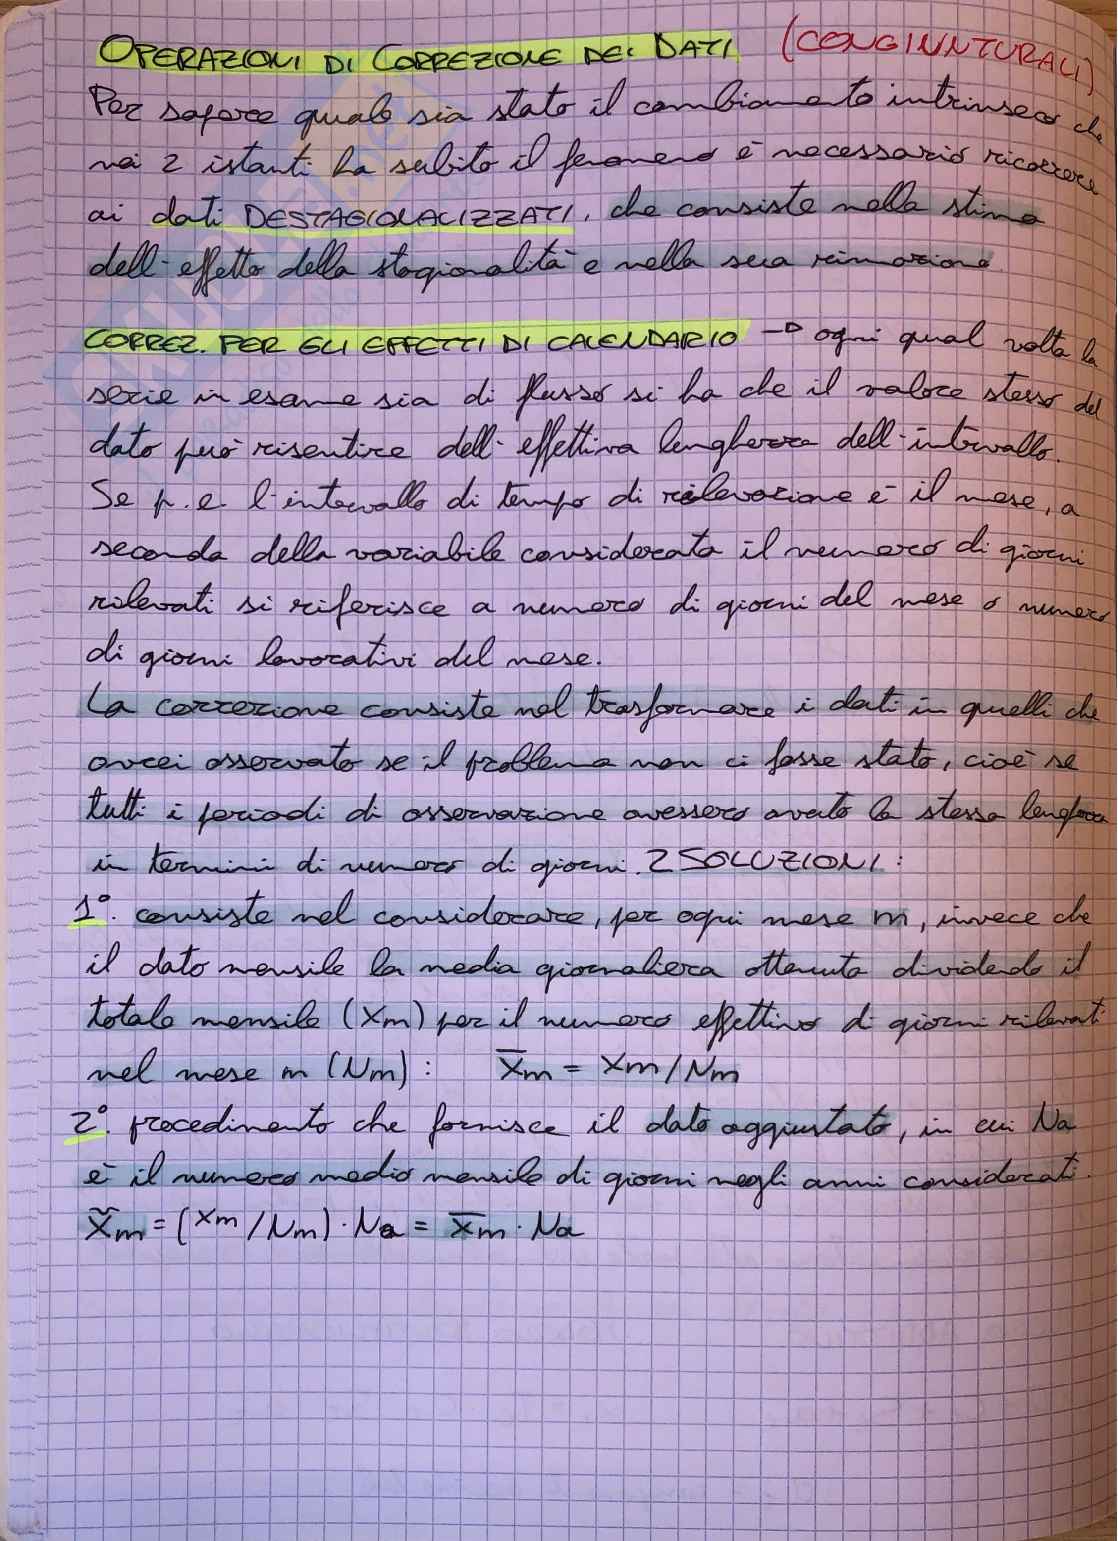 OPERAZIONI DI CORREZIONE DEI DATI (CONGINNTURALI)
Per sapere quale sia stato il cambiamento intrinseco che
nei 2 istanti ha subito il fenomeno è necessario ricorrere
ai dati DESTAGIOLALIZZATI, che consiste nella stima
dell'effetto della stagionalità e nella sua rimozione.
CORREZ. PER GLI EFFETTI DI CALENDARIO → ogni qual volta la
serie in esame sia di flusso si ha che il valore stesso del
dato può risentire dell'effettiva lunghezza dell'intervallo.
Se p.e. l'intervallo di tempo di rilevazione è il mese, a
seconda della variabile considerata il numero di giorni
rilevati si riferisce a numero di giorni del mese o numero
di giorni lavorativi del mese.
La correzione consiste nel trasformare i dati in quelli che
avrei osservato se il problema non ci fosse stato, cioè se
tutti i periodi di osservazione avessero avuto la stessa lunghezza
in termini di numero di giorni. 2 SOLUZIONI:
1°. consiste nel considerare, per ogni mese m, invece che
il dato mensile la media giornaliera ottenuta dividendo il
totale mensile (Xm) per il numero effettivo di giorni rilevati
nel mese m (Nm): X̄m = Xm/Nm
2°. procedimento che fornisce il dato aggiustato, in cui Na
è il numero medio mensile di giorni negli anni considerati.
X̃m = (Xm/Nm) · Na = X̄m · Na